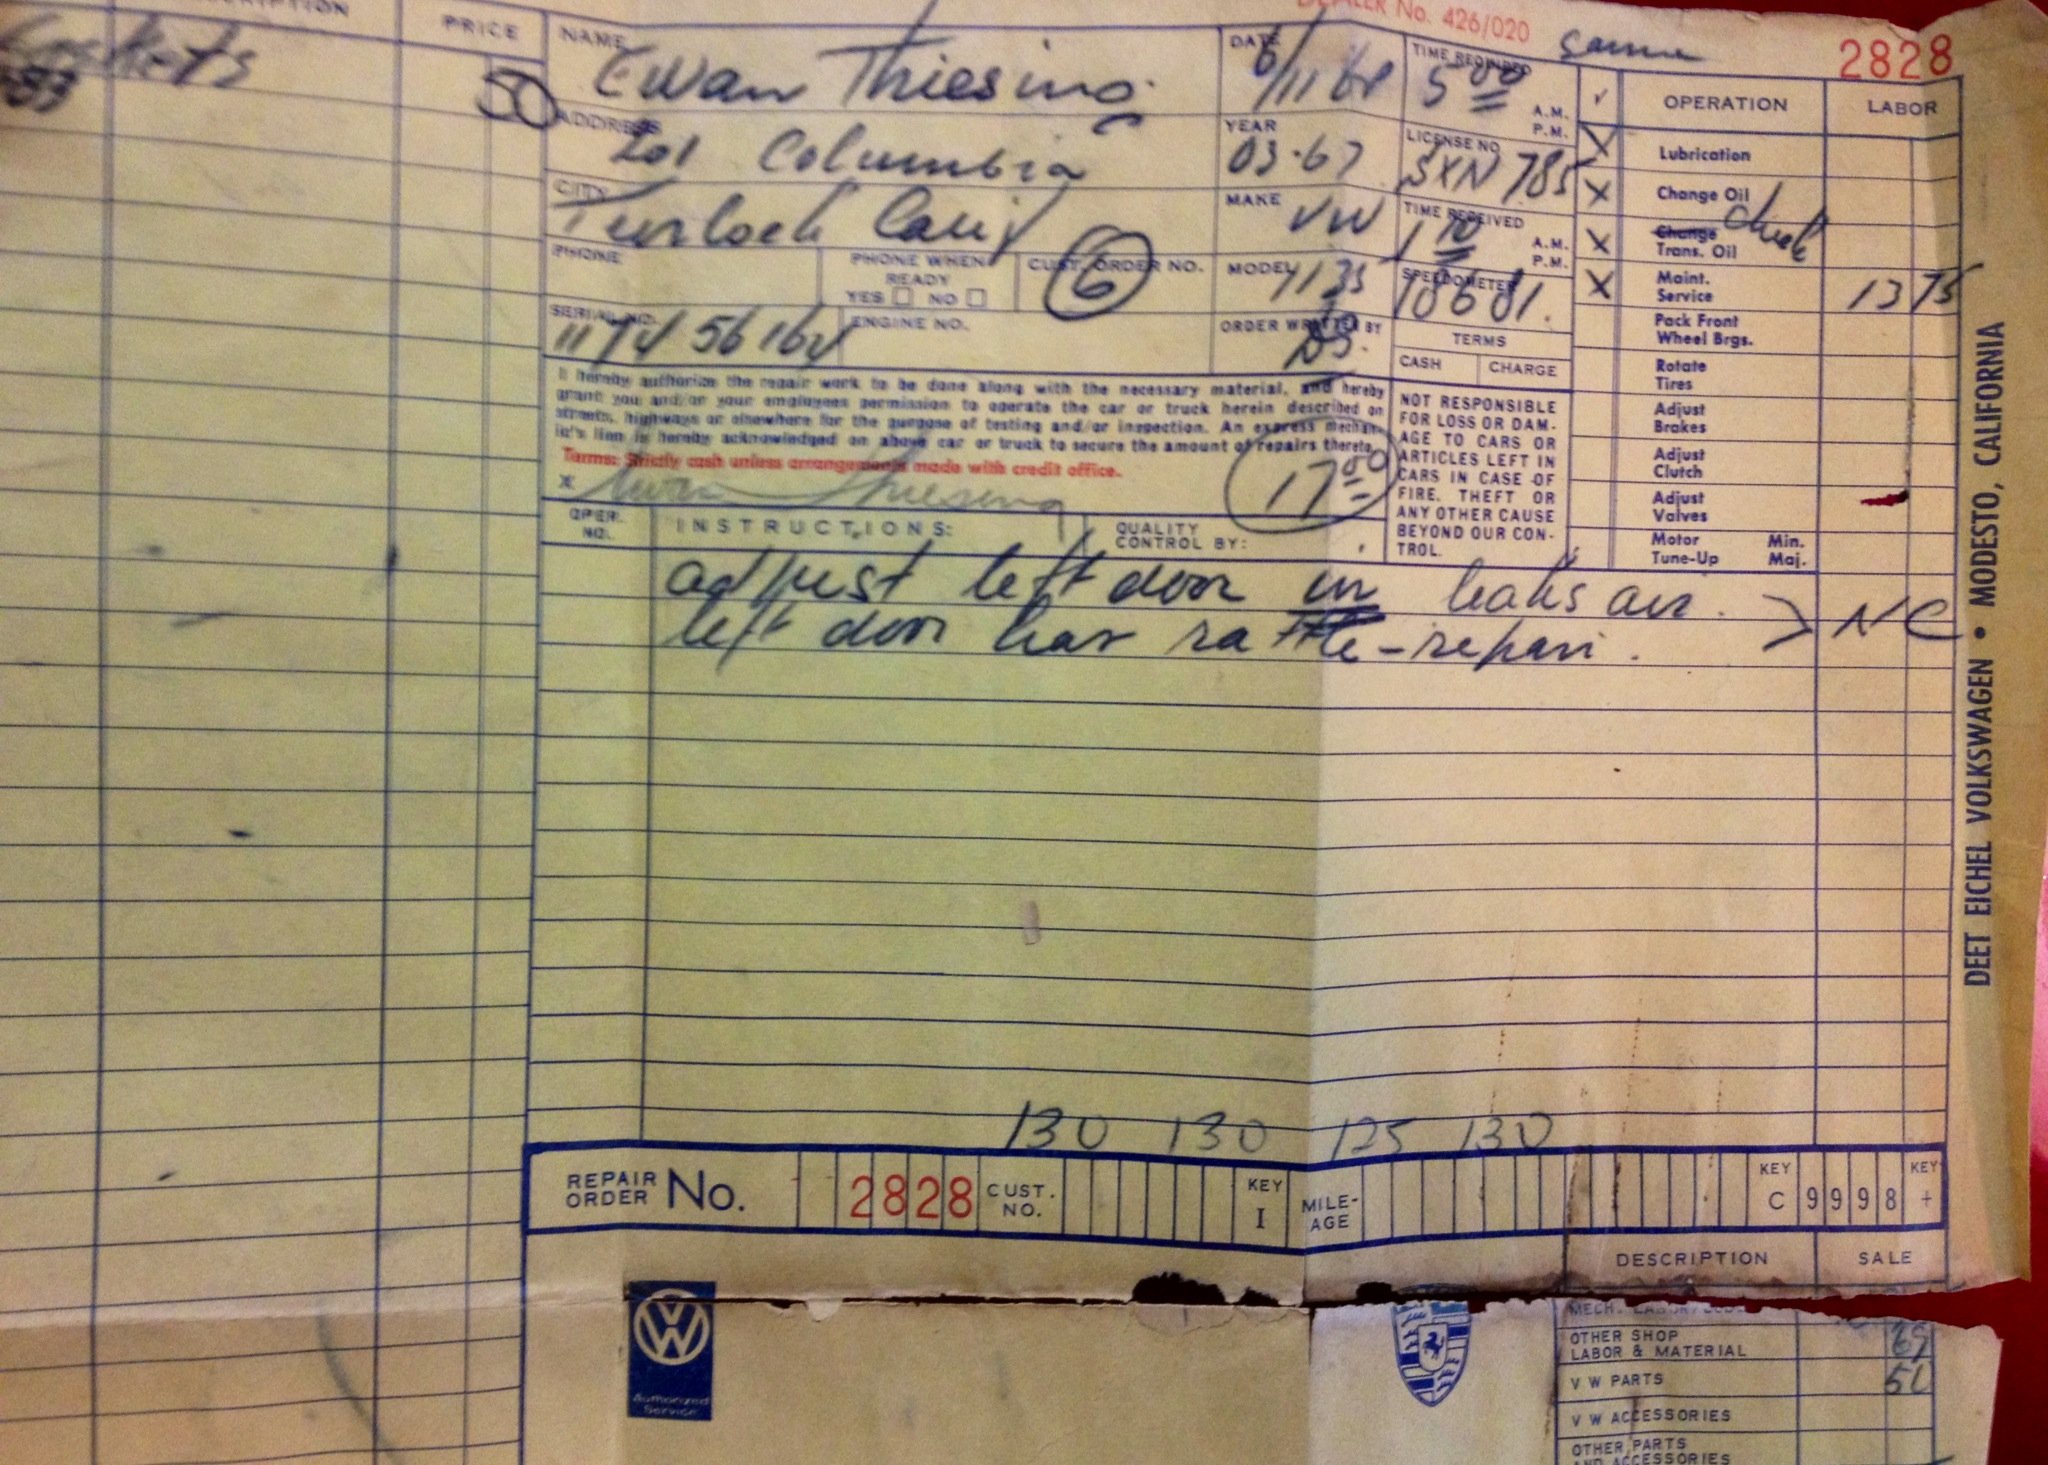 DESCRIPTION PRICE
Gaskets 50
DEALER No. 426/020
2828
NAME Ewan Thiesing
DATE 6/11 68
TIME REQUIRED 5 00 A.M. P.M.
ADDRESS 201 Columbia
YEAR 03.67
LICENSE NO. SXN 785
CITY Turlock Calif
MAKE VW
TIME RECEIVED 1 10 A.M. P.M.
PHONE
PHONE WHEN READY YES NO
CUST. ORDER NO. 6
MODEL
SPEEDOMETER 18681.
SERIAL NO.
ENGINE NO.
ORDER WRITTEN BY
TERMS
CASH CHARGE
I hereby authorize the repair work to be done along with the necessary material, and hereby
grant you and/or your employees permission to operate the car or truck herein described on
streets, highways or elsewhere for the purpose of testing and/or inspection. An express mechan-
ic's lien is hereby acknowledged on above car or truck to secure the amount of repairs thereto.
Terms: Strictly cash unless arrangements made with credit office.
x Ewan Thiesing
17 50
NOT RESPONSIBLE
FOR LOSS OR DAM-
AGE TO CARS OR
ARTICLES LEFT IN
CARS IN CASE OF
FIRE, THEFT OR
ANY OTHER CAUSE
BEYOND OUR CON-
TROL.
✓ OPERATION LABOR
X Lubrication
X Change Oil
X Change Trans. Oil check
X Maint. Service 13 75
Pack Front Wheel Brgs.
Rotate Tires
Adjust Brakes
Adjust Clutch
Adjust Valves
Motor Tune-Up Min. Maj.
OPER. NO. INSTRUCTIONS: QUALITY CONTROL BY:
adjust left door leaks air.
left door has rattle - repair. > NC
DEET EICHEL VOLKSWAGEN • MODESTO, CALIFORNIA
130 130 125 130
REPAIR ORDER No. 2828 CUST. NO. KEY I MILE-AGE KEY C 9998 KEY +
DESCRIPTION SALE
MECH. LABOR
OTHER SHOP LABOR & MATERIAL
V W PARTS
V W ACCESSORIES
OTHER PARTS AND ACCESSORIES
VW
Authorized Service